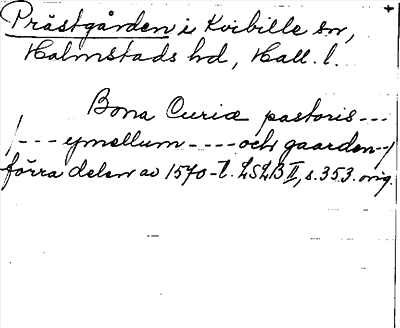 Prästgården i Kvibille sn,
Halmstads hd, Hall. l.
Bona Curiæ pastoris ---
/--- ymellum ---- och gaarden --/
förra delen av 1570-t. LSLB II, s. 353. orig.